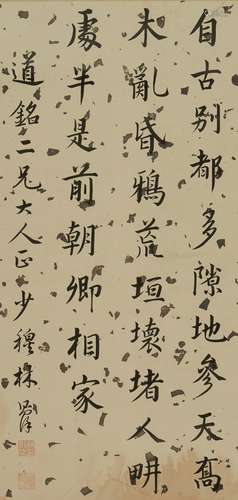 自古別都多隙地參天喬
木亂昏鴉荒垣壞堵人耕
處半是前朝卿相家
道銘二兄大人正少穆林則徐